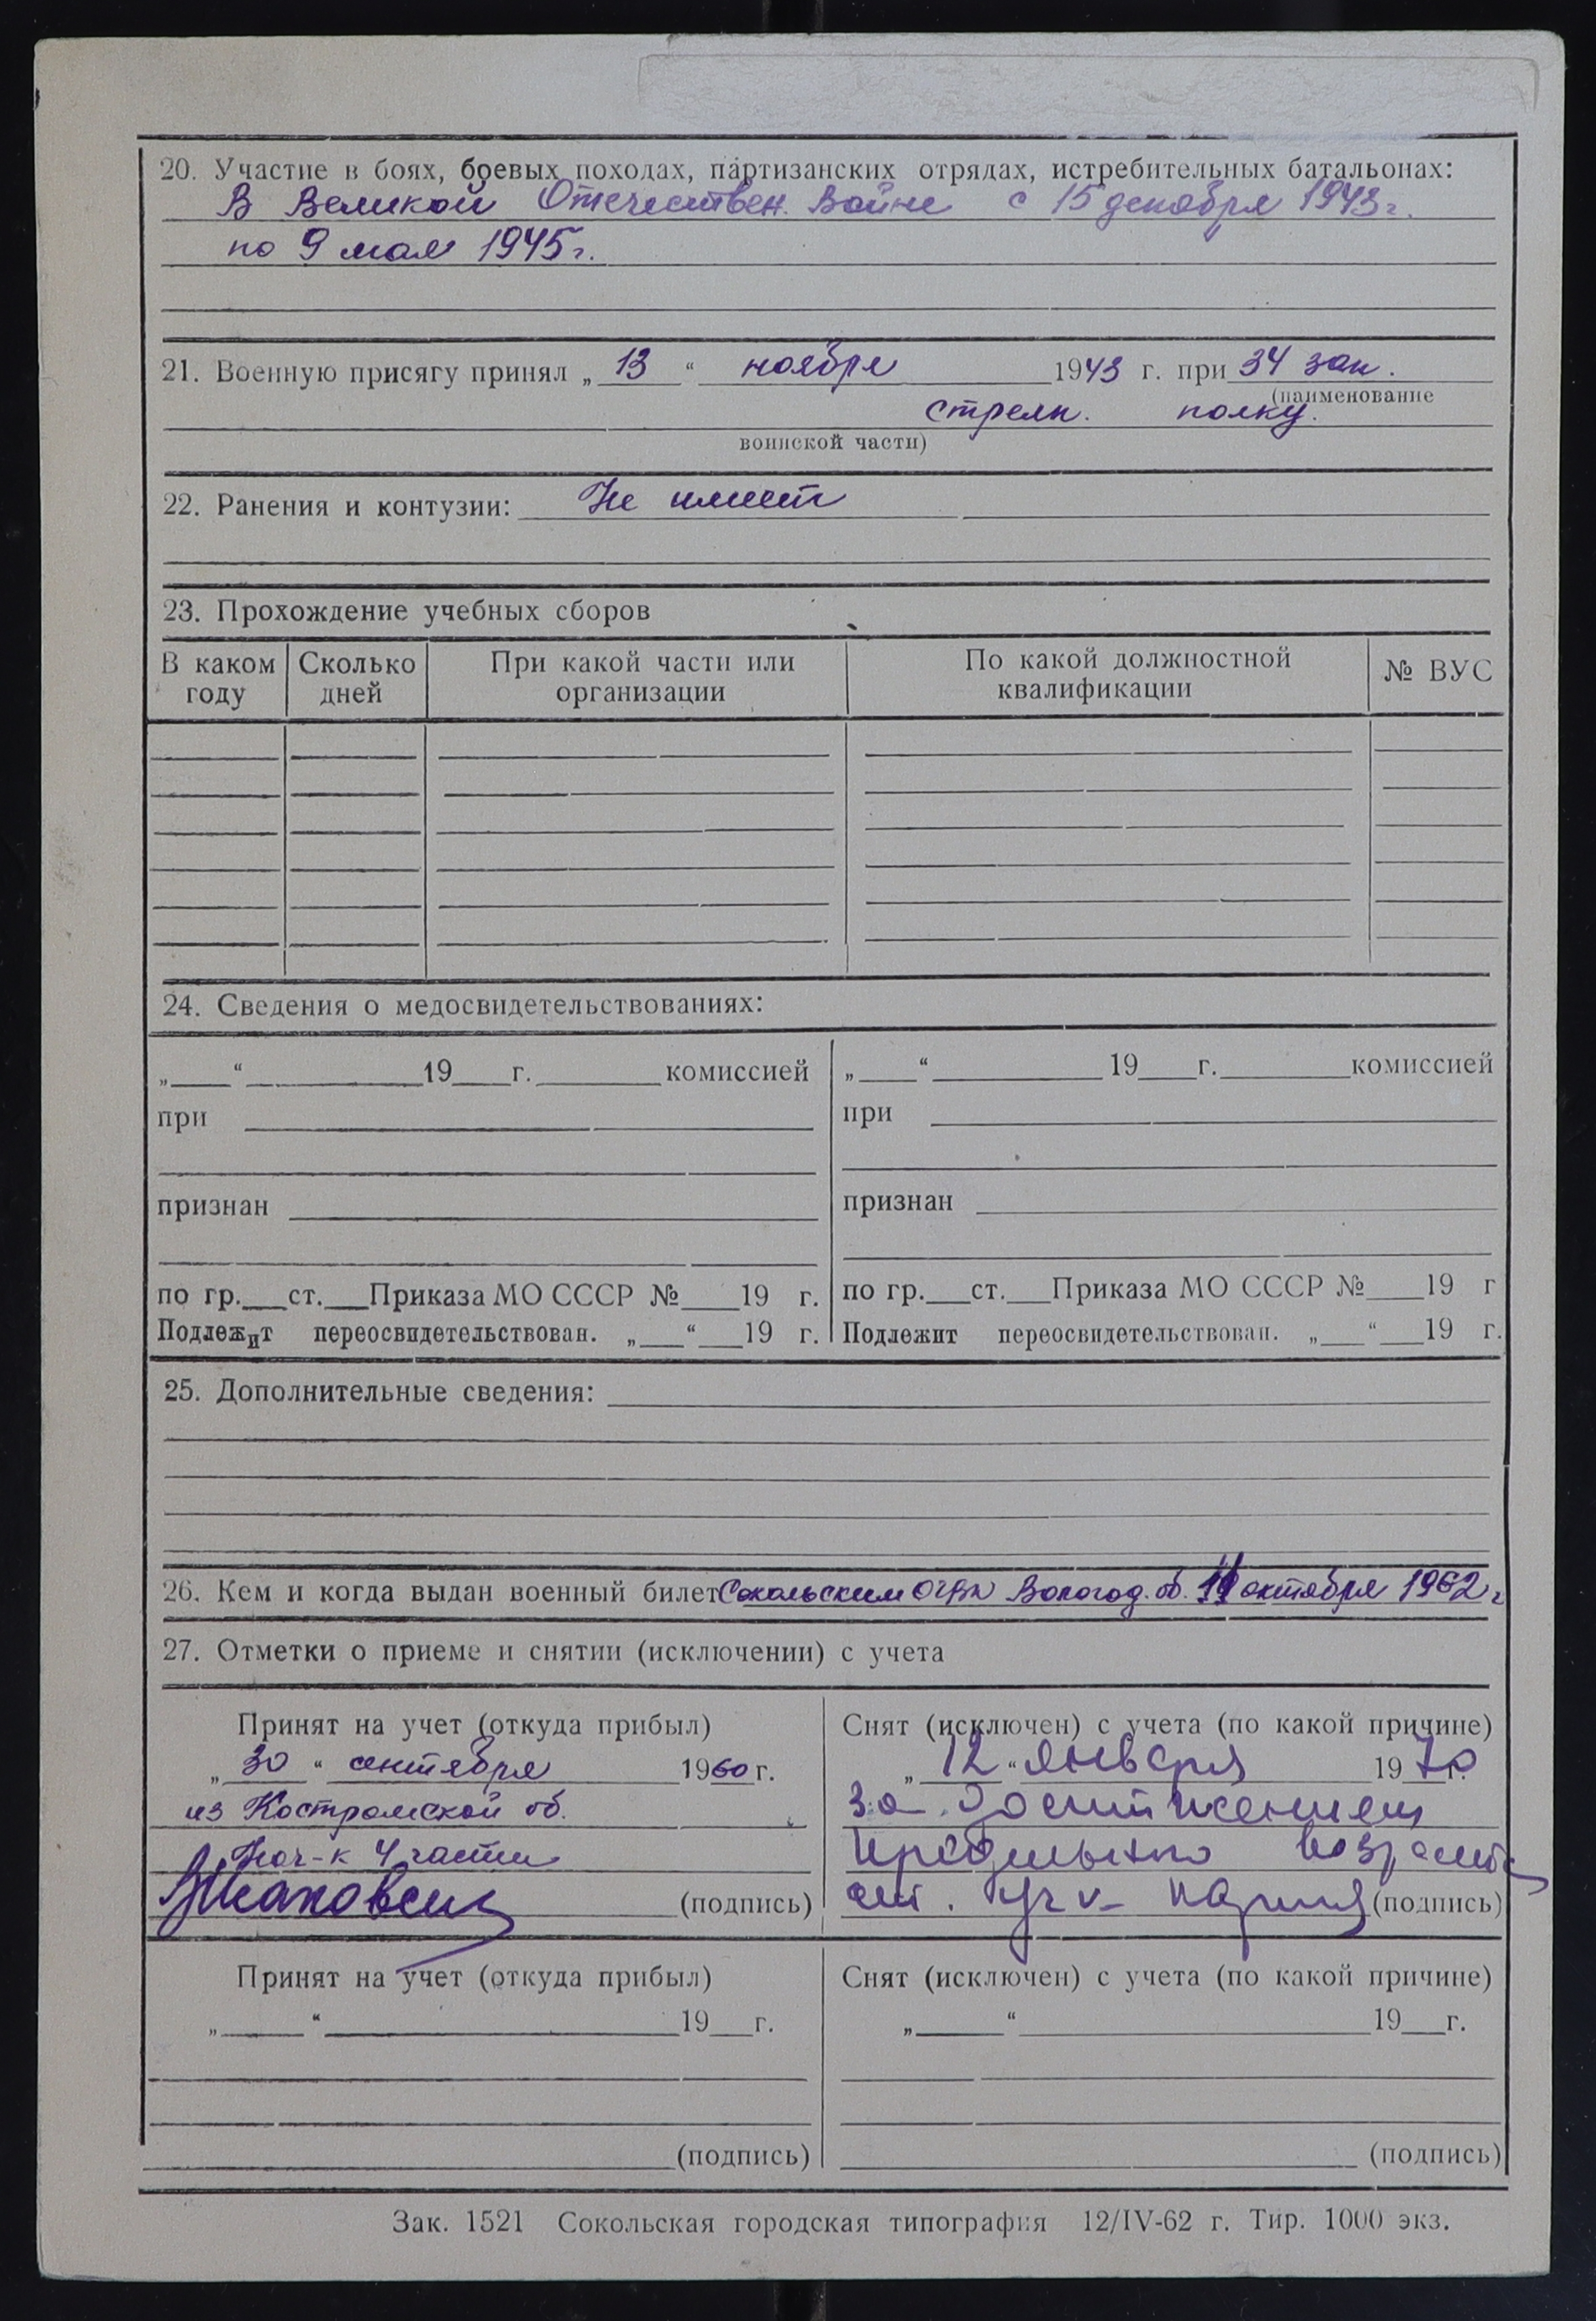 20. Участие в боях, боевых походах, партизанских отрядах, истребительных батальонах:
В Великой Отечествен. войне с 15 декабря 1943 г.
по 9 мая 1945 г.
21. Военную присягу принял „ 13 “ ноября 1943 г. при 34 зап.
(наименование
стрелк. полку.
воинской части)
22. Ранения и контузии: Не имеет
23. Прохождение учебных сборов
В каком году Сколько дней При какой части или организации По какой должностной квалификации № ВУС
24. Сведения о медосвидетельствованиях:
„ “ 19 г. комиссией „ “ 19 г. комиссией
при при
признан признан
по гр. ст. Приказа МО СССР № 19 г. по гр. ст. Приказа МО СССР № 19 г
Подлежит переосвидетельствован. „ “ 19 г. Подлежит переосвидетельствован. „ “ 19 г.
25. Дополнительные сведения:
26. Кем и когда выдан военный билет Сокольским ОГВК Вологод. об. октября 1962 г
27. Отметки о приеме и снятии (исключении) с учета
Принят на учет (откуда прибыл) Снят (исключен) с учета (по какой причине)
„ 30 “ сентября 1960 г. „ 12 “ января 1970 г.
из Костромской об. За достижением
Нач-к 4 части предельного возраста
(подпись) (подпись)
Принят на учет (откуда прибыл) Снят (исключен) с учета (по какой причине)
„ “ 19 г. „ “ 19 г.
(подпись) (подпись)
Зак. 1521 Сокольская городская типография 12/IV-62 г. Тир. 1000 экз.